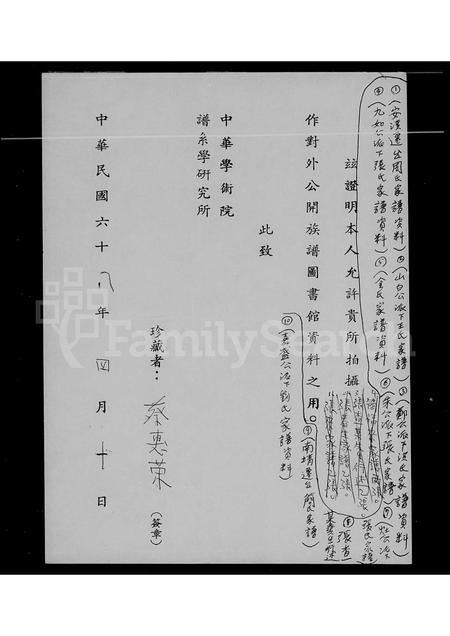 ①(安溪遷台周氏家譜資料)②(山白公派下王氏家譜)③(鄭公派下洪氏家譜資料)
④(九如公派下張氏家譜資料)⑤(余氏家譜資料)⑥(朱公派下張氏家譜)⑦(灶公派下
張氏家譜
茲證明本人允許貴所拍攝
⑧(張查
作對外公開族譜圖書館資料之用。⑨(南靖遷台簡氏家譜)
⑩(嘉盛公派下劉氏家譜資料)
此致
中華學術院
譜系學研究所
珍藏者：蔡惠荣(簽章)
中華民國六十八年四月十日
FamilySearch